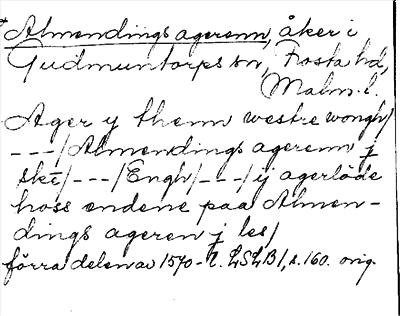 Almendings agerenn, åker i
Gudmuntorps sn, Frosta hd,
Malm. l.
Ager y thenn westre wongh/
---/Almendings agerenn j
ske/---/Engh/---/ij agerløde
hoss endene paa Almen-
dings ageren j les/
förra delen av 1570-t. LSLB1, s. 160. orig.